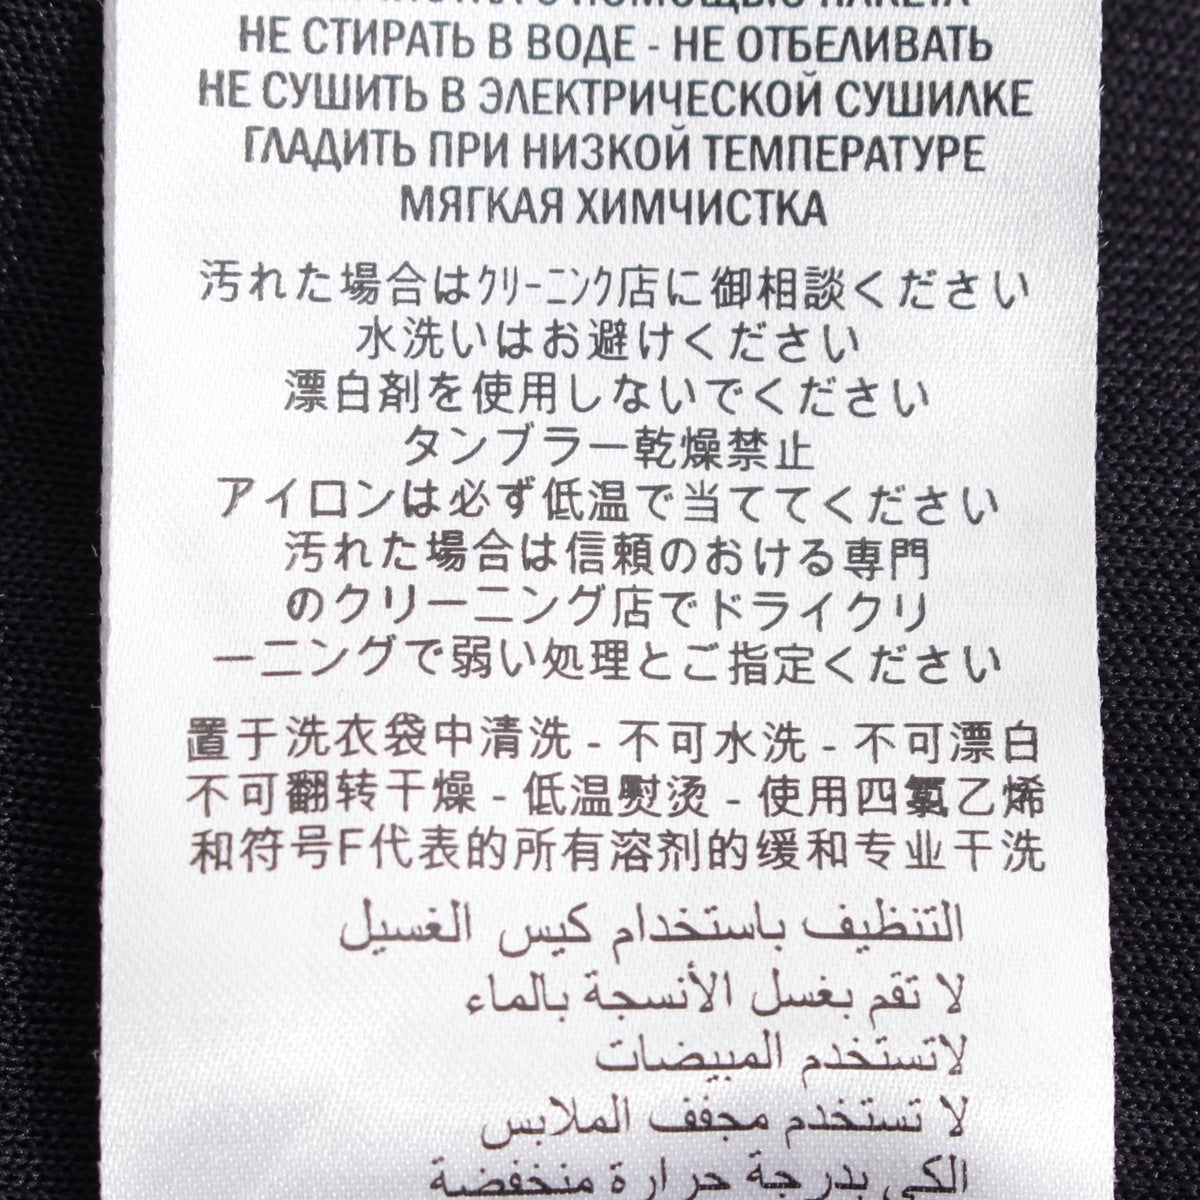 ЧИСТКА С ПОМОЩЬЮ ПАКЕТА
НЕ СТИРАТЬ В ВОДЕ - НЕ ОТБЕЛИВАТЬ
НЕ СУШИТЬ В ЭЛЕКТРИЧЕСКОЙ СУШИЛКЕ
ГЛАДИТЬ ПРИ НИЗКОЙ ТЕМПЕРАТУРЕ
МЯГКАЯ ХИМЧИСТКА
汚れた場合はｸﾘｰﾆﾝｸ店に御相談ください
水洗いはお避けください
漂白剤を使用しないでください
タンブラー乾燥禁止
アイロンは必ず低温で当ててください
汚れた場合は信頼のおける専門
のクリーニング店でドライクリ
ーニングで弱い処理とご指定ください
置于洗衣袋中清洗 - 不可水洗 - 不可漂白
不可翻转干燥 - 低温熨烫 - 使用四氯乙烯
和符号F代表的所有溶剂的缓和专业干洗
التنظيف باستخدام كيس الغسيل
لا تقم بغسل الأنسجة بالماء
لاتستخدم المبيضات
لا تستخدم مجفف الملابس
الكي بدرجة حرارة منخفضة